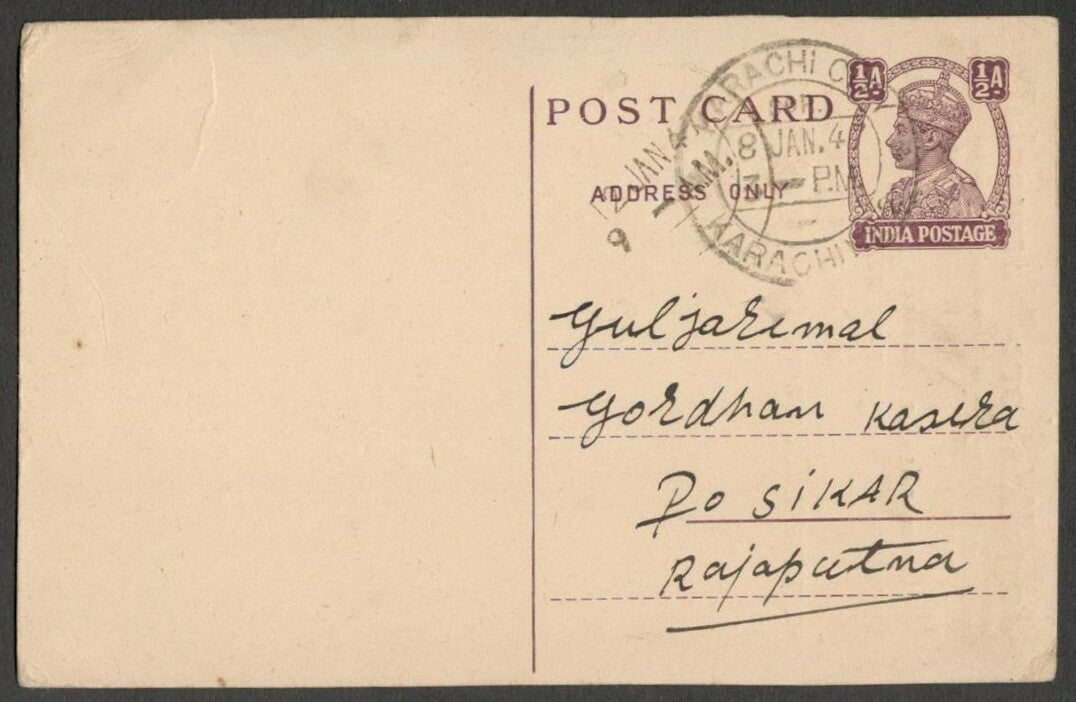 POST CARD
ADDRESS ONLY
½A ½A
INDIA POSTAGE
KARACHI
8 JAN.4
3 — P.M
KARACHI
12 JAN 4
9
Guljarimal
Gordhan Kasera
Po SiKAR
Rajaputna